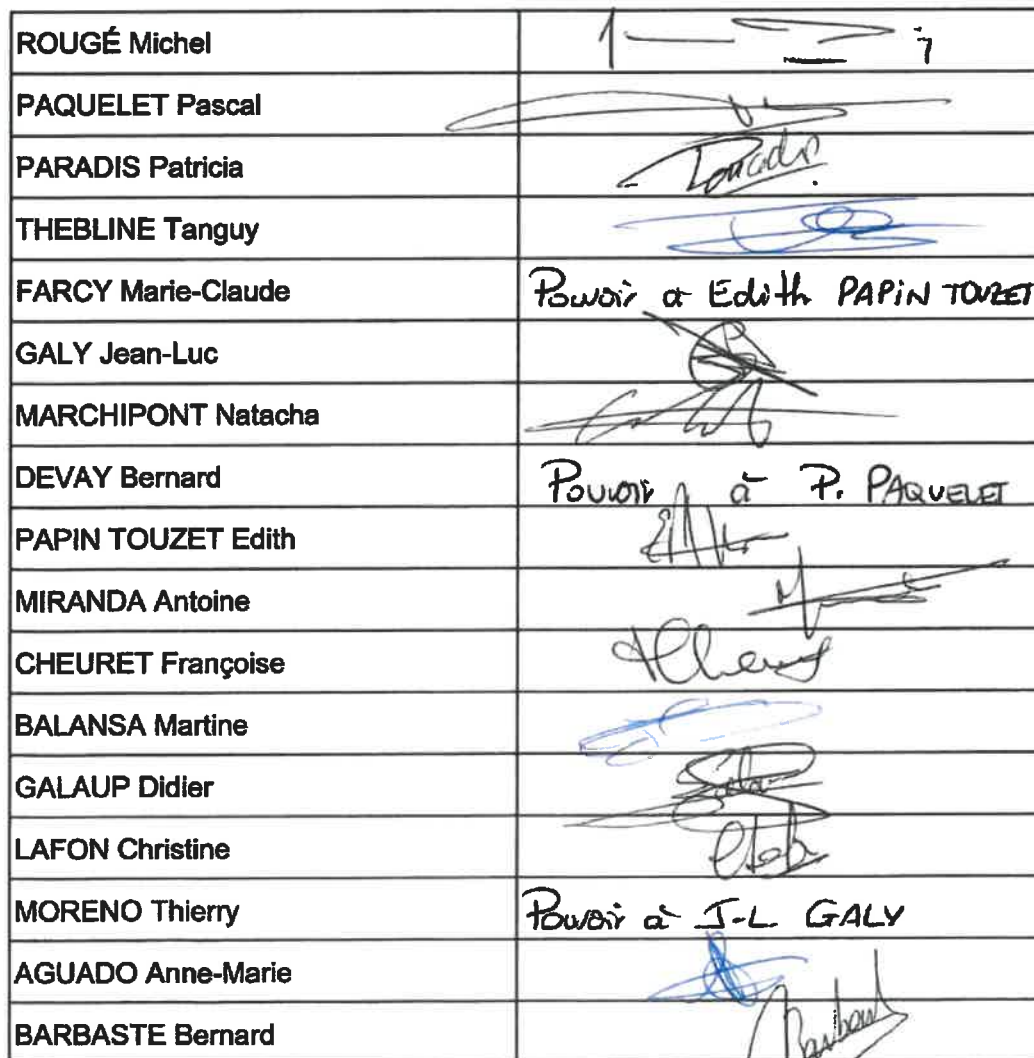 ROUGÉ Michel
PAQUELET Pascal
PARADIS Patricia Paradis
THEBLINE Tanguy
FARCY Marie-Claude Pouvoir à Edith PAPIN TOUZET
GALY Jean-Luc
MARCHIPONT Natacha
DEVAY Bernard Pouvoir à P. PAQUELET
PAPIN TOUZET Edith
MIRANDA Antoine
CHEURET Françoise
BALANSA Martine
GALAUP Didier
LAFON Christine
MORENO Thierry Pouvoir à J-L GALY
AGUADO Anne-Marie
BARBASTE Bernard